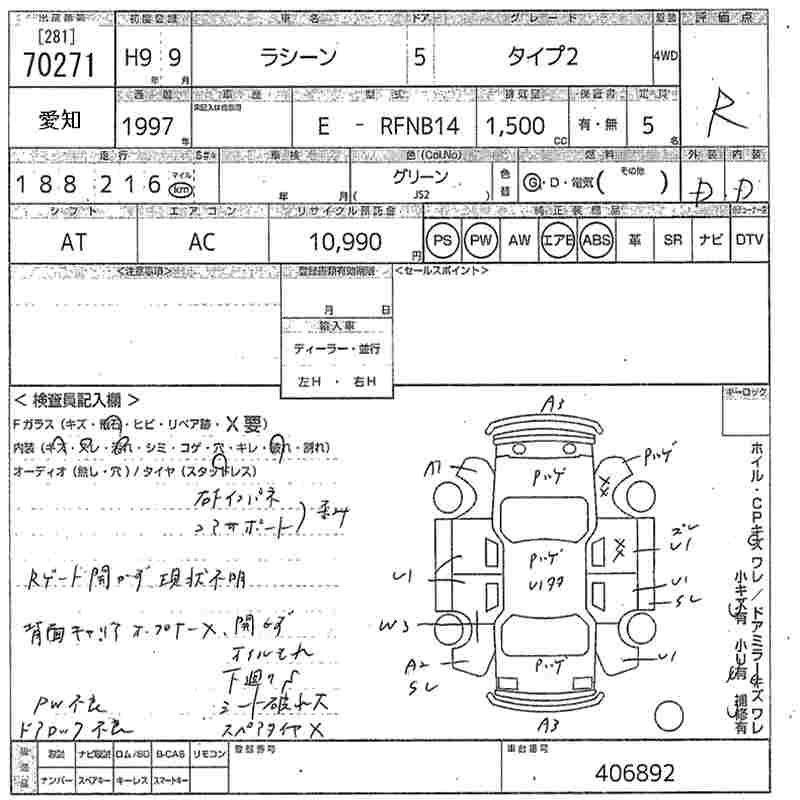 出品番号 初度登録 車名 ドア グレード 駆動 評価点
[281]
70271 H9年 9月 ラシーン 5 タイプ2 4WD R
愛知 西暦 車歴 型式 排気量 保証書 定員
1997年 E - RFNB14 1,500cc 有・無 5名
走行 車検 色(Col,No) 燃料 外装 内装
188216 マイル km 年 月 グリーン JS2 色替 G・D・電気( その他 ) D D
シフト エアコン リサイクル預託金 純正装備品
AT AC 10,990円 PS PW AW エアB ABS 革 SR ナビ DTV
<注意事項> 登録書類有効期限 <セールスポイント>
月 日
輸入車
ディーラー・並行
左H ・ 右H
キーロック
< 検査員記入欄 >
Fガラス (キズ・飛石・ヒビ・リペア跡・X要)
内装 (キズ・スレ・汚れ・シミ・コゲ・穴・キレ・破れ・割れ)
オーディオ (無し・穴) / タイヤ (スタッドレス)
右インパネ
コアサポート
Rゲート開かず 現状不明
背面キャリア オープナーX、開かず
オイルもれ
下廻りS
シート破れ大
PW不良
ドアロック不良 スペアタイヤX
A3
Pハゲ
Pハゲ
A1
XX
U1
XX
U1
Pハゲ
U1
U1
SL
W3
A2
SL
Pハゲ
U1
A3
ホイル・CPキズ ワレ / ドアミラーキズ ワレ
小キズ有 小U有 補修有
取説 ナビ取説 ロム/SD B-CAS リモコン 登録番号 車台番号
ナンバー スペアキー キーレス スマートキー 406892